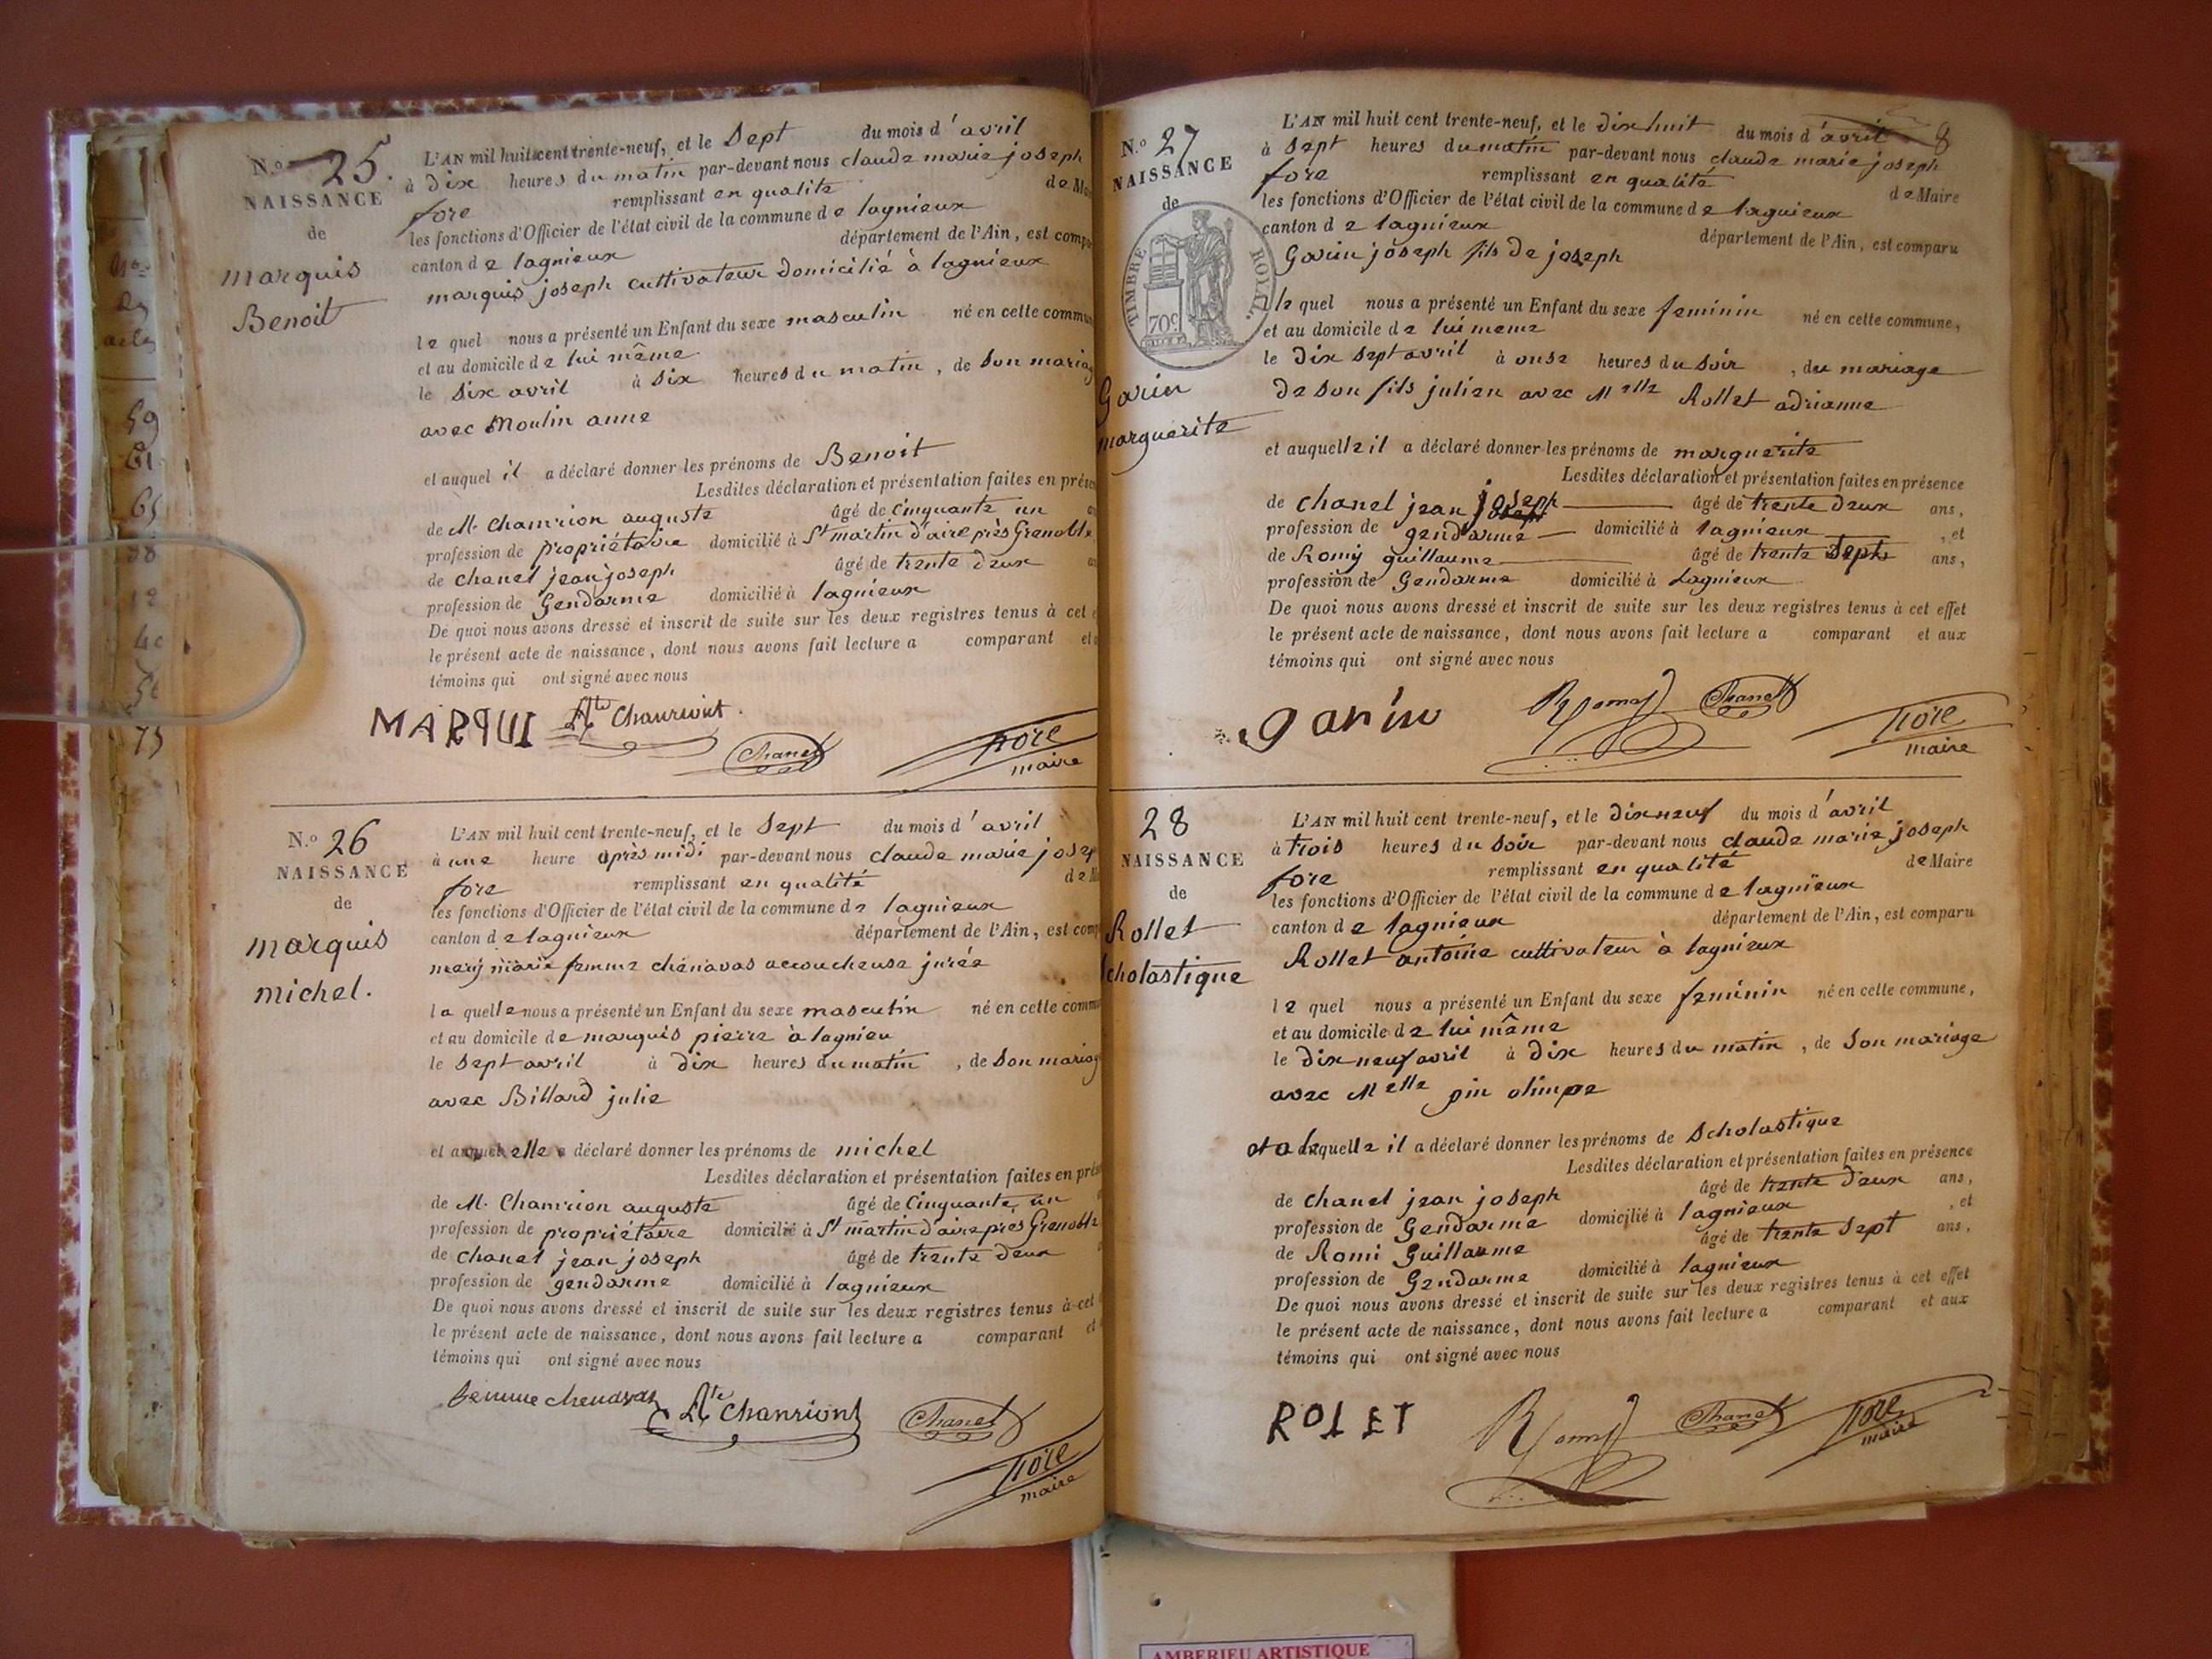 N.o 25.
NAISSANCE
de
marquis
Benoit
L'AN mil huit cent trente-neuf, et le Sept du mois d'avril
à dix heures du matin par-devant nous claude marie joseph
fore remplissant en qualité de
les fonctions d'Officier de l'état civil de la commune de lagnieux
canton de lagnieux département de l'Ain, est
marquis joseph cultivateur domicilié à lagnieux
le quel nous a présenté un Enfant du sexe masculin né en cette
et au domicile de lui même
le six avril à six heures du matin, de son
avec Moulin anne
et auquel il a déclaré donner les prénoms de Benoit
Lesdites déclaration et présentation faites en
de M. Chamrion auguste âgé de cinquante un
profession de propriétaire domicilié à St martin d'aire près Grenoble
de chanel jean joseph âgé de trente deux
profession de Gendarme domicilié à lagnieux
De quoi nous avons dressé et inscrit de suite sur les deux registres tenus à cet
le présent acte de naissance, dont nous avons fait lecture a comparant
témoins qui ont signé avec nous
MARQUI Ate Chanriont
Chanel
fore
maire
N.o 26
NAISSANCE
de
marquis
michel.
L'AN mil huit cent trente-neuf, et le Sept du mois d'avril
à une heure après midi par-devant nous claude marie
fore remplissant en qualité
les fonctions d'Officier de l'état civil de la commune de lagnieux
canton de lagnieux département de l'Ain, est
mary marie femme chénavas accoucheuse jurée
la quelle nous a présenté un Enfant du sexe masculin né en cette
et au domicile de marquis pierre à lagnieu
le sept avril à dix heures du matin, de son
avec Billard julie
et auquel elle a déclaré donner les prénoms de michel
Lesdites déclaration et présentation faites en
de M. Chamrion auguste âgé de Cinquante un
profession de propriétaire domicilié à St martin d'aire près Grenoble
de chanel jean joseph âgé de trente deux
profession de gendarme domicilié à lagnieux
De quoi nous avons dressé et inscrit de suite sur les deux registres tenus à cet
le présent acte de naissance, dont nous avons fait lecture a comparant et
témoins qui ont signé avec nous
femme chenavas Ate Chanriont Chanel
fore
maire
8
N.o 27
NAISSANCE
de
TIMBRE ROYAL
70c
Garin
marguerite
L'AN mil huit cent trente-neuf, et le dix huit du mois d'avril
à sept heures du matin par-devant nous claude marie joseph
fore remplissant en qualité de Maire
les fonctions d'Officier de l'état civil de la commune de lagnieux
canton de lagnieux département de l'Ain, est comparu
Garin joseph fils de joseph
le quel nous a présenté un Enfant du sexe feminin né en cette commune,
et au domicile de lui meme
le dix sept avril à onse heures du soir, du mariage
de son fils julien avec Melle Rollet adrianne
et auquelle il a déclaré donner les prénoms de marguerite
Lesdites déclaration et présentation faites en présence
de chanel jean joseph âgé de trente deux ans,
profession de gendarme domicilié à lagnieux, et
de Romy guillaume âgé de trente Sept ans,
profession de Gendarme domicilié à Lagnieux
De quoi nous avons dressé et inscrit de suite sur les deux registres tenus à cet effet
le présent acte de naissance, dont nous avons fait lecture a comparant et aux
témoins qui ont signé avec nous
garin Romy Chanel fore
maire
28
NAISSANCE
de
Rollet
Scholastique
L'AN mil huit cent trente-neuf, et le dix neuf du mois d'avril
à trois heures du soir par-devant nous claude marie joseph
fore remplissant en qualité de Maire
les fonctions d'Officier de l'état civil de la commune de lagnieux
canton de lagnieux département de l'Ain, est comparu
Rollet antoine cultivateur à lagnieux
le quel nous a présenté un Enfant du sexe feminin né en cette commune,
et au domicile de lui même
le dix neuf avril à dix heures du matin, de son mariage
avec Melle pin olimpe
et a laquelle il a déclaré donner les prénoms de Scholastique
Lesdites déclaration et présentation faites en présence
de chanel jean joseph âgé de trente deux ans,
profession de Gendarme domicilié à lagnieux, et
de Romi Guillaume âgé de trente sept ans,
profession de Gendarme domicilié à lagnieux
De quoi nous avons dressé et inscrit de suite sur les deux registres tenus à cet effet
le présent acte de naissance, dont nous avons fait lecture a comparant et aux
témoins qui ont signé avec nous
ROLET Romy Chanel fore
maire
AMBERIEU ARTISTIQUE